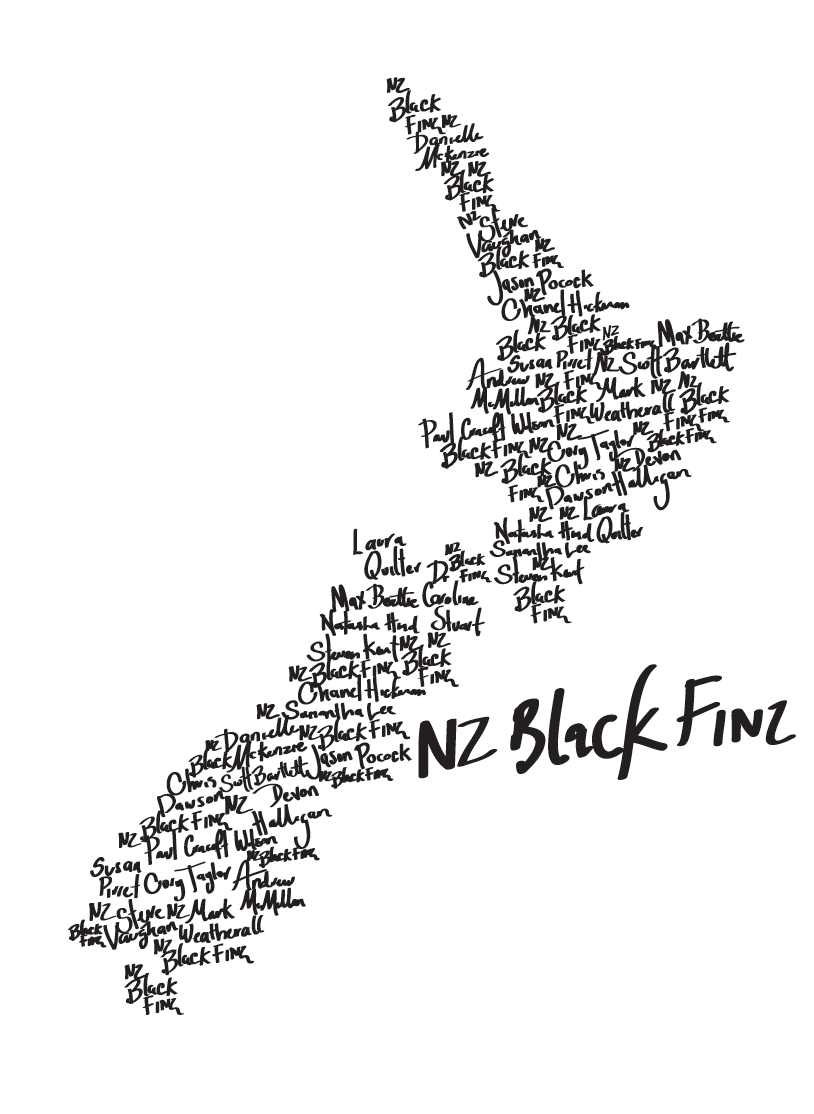 NZ
Black
Finz NZ
Danielle
McKenzie
NZ NZ
Black
Finz
NZ Steve
Vaughan NZ
Black Finz
Jason Pocock
NZ
Chanel Hickman
NZ Black
Black Finz NZ Black Finz Max Beattie
Susan Pirret NZ Scott Bartlett
Andrew NZ Finz
McMillan Black Mark NZ NZ
Paul Cracroft Wilson Finz Weatherall Black
Black Finz NZ NZ Cory Taylor NZ Finz Finz
Black Finz
NZ Black NZ Chris NZ Devon
Finz Dawson Halligan
NZ NZ Laura
Natasha Hind Quilter
Samantha Lee
NZ
Steven Kent
Black
Finz
Laura
Quilter Dr NZ Black Finz
Max Beattie Caroline
Natasha Hind Stuart
Steven Kent NZ NZ
NZ Black Finz Black
Finz
Chanel Hickman
NZ Samantha Lee
NZ Danielle NZ Black Finz
Black McKenzie
Jason Pocock
Chris Scott Bartlett NZ Black Finz
Dawson NZ Devon
NZ Black Finz Halligan
Paul Cracroft Wilson
Susan NZ Black Finz
Pirret Cory Taylor Andrew
NZ Steve NZ Mark McMillan
Black Finz Vaughan Weatherall
NZ
Black Finz
NZ
Black
Finz
NZ Black Finz